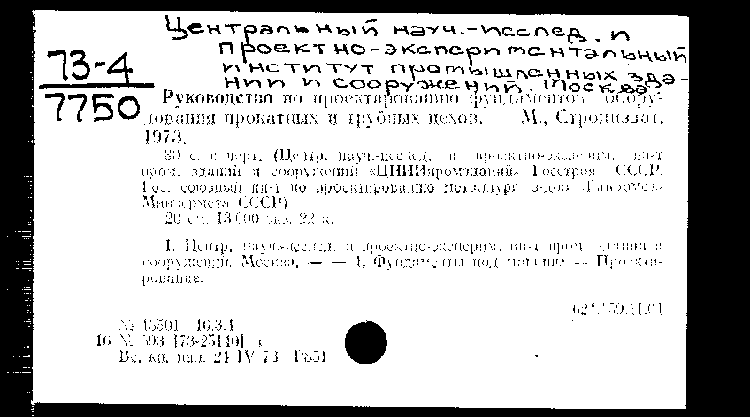 Центральный науч.-исслед. и
проектно-экспериментальный
институт промышленных зда-
ний и сооружений. Москва.
73-4
7750
Руководство по проектированию фундаментов обору-
дования прокатных и трубных цехов. М., Стройиздат,
1973.
80 с. с черт. (Центр. науч.-исслед. и проектно-эксперим. ин-т
пром. зданий и сооружений «ЦНИИпромзданий» Госстроя СССР.
Гос. союзный ин-т по проектированию металлург. з-дов
Минчермета СССР)
20 см. 13000 экз. 22 к.
1. Центр. науч.-исслед. и проектно-эксперим. ин-т пром. зданий и
сооружений. Москва. — — 1. Фундаменты под машины — Проекти-
рование.
№ 15501 16.3.4
16 № 593 [73-25140] к
Вс. кн. пал. 24 IV 73